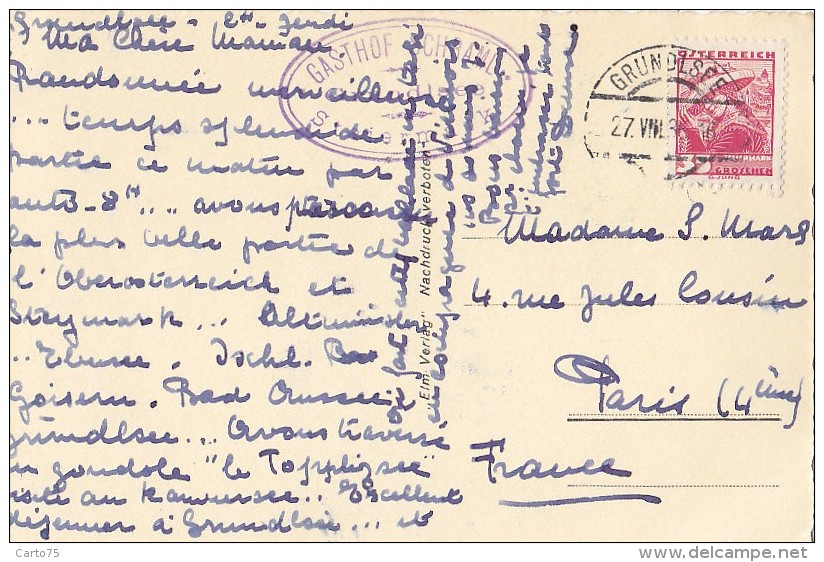 Grundlsee - 2h Jeudi
Ma Chère Maman.
Randonnée merveilleuse
... temps splendide
partie ce matin par
auto - 8h ... avons parcouru
la plus belle partie de
l'Oberosterreich et
Steymark ...
Ebensee. Ischl. Bad
Goisern. Bad Aussee.
Grundlsee ... avons traversé
en gondole "le Topplizsee"
visité au Kammersee .. Excellent
déjeuner à Grundlsee ... et
GASTHOF SCHRAML
Grundlsee
Steiermark
"Elm Verlag" Nachdruck verboten
en compagnie de
Bons baisers
GRUNDLSEE
27.VIII.3
ÖSTERREICH
GROSCHEN
Madame S. Mars
4. rue Jules Cousin
Paris (4ème)
France
Carto75
www.delcampe.net